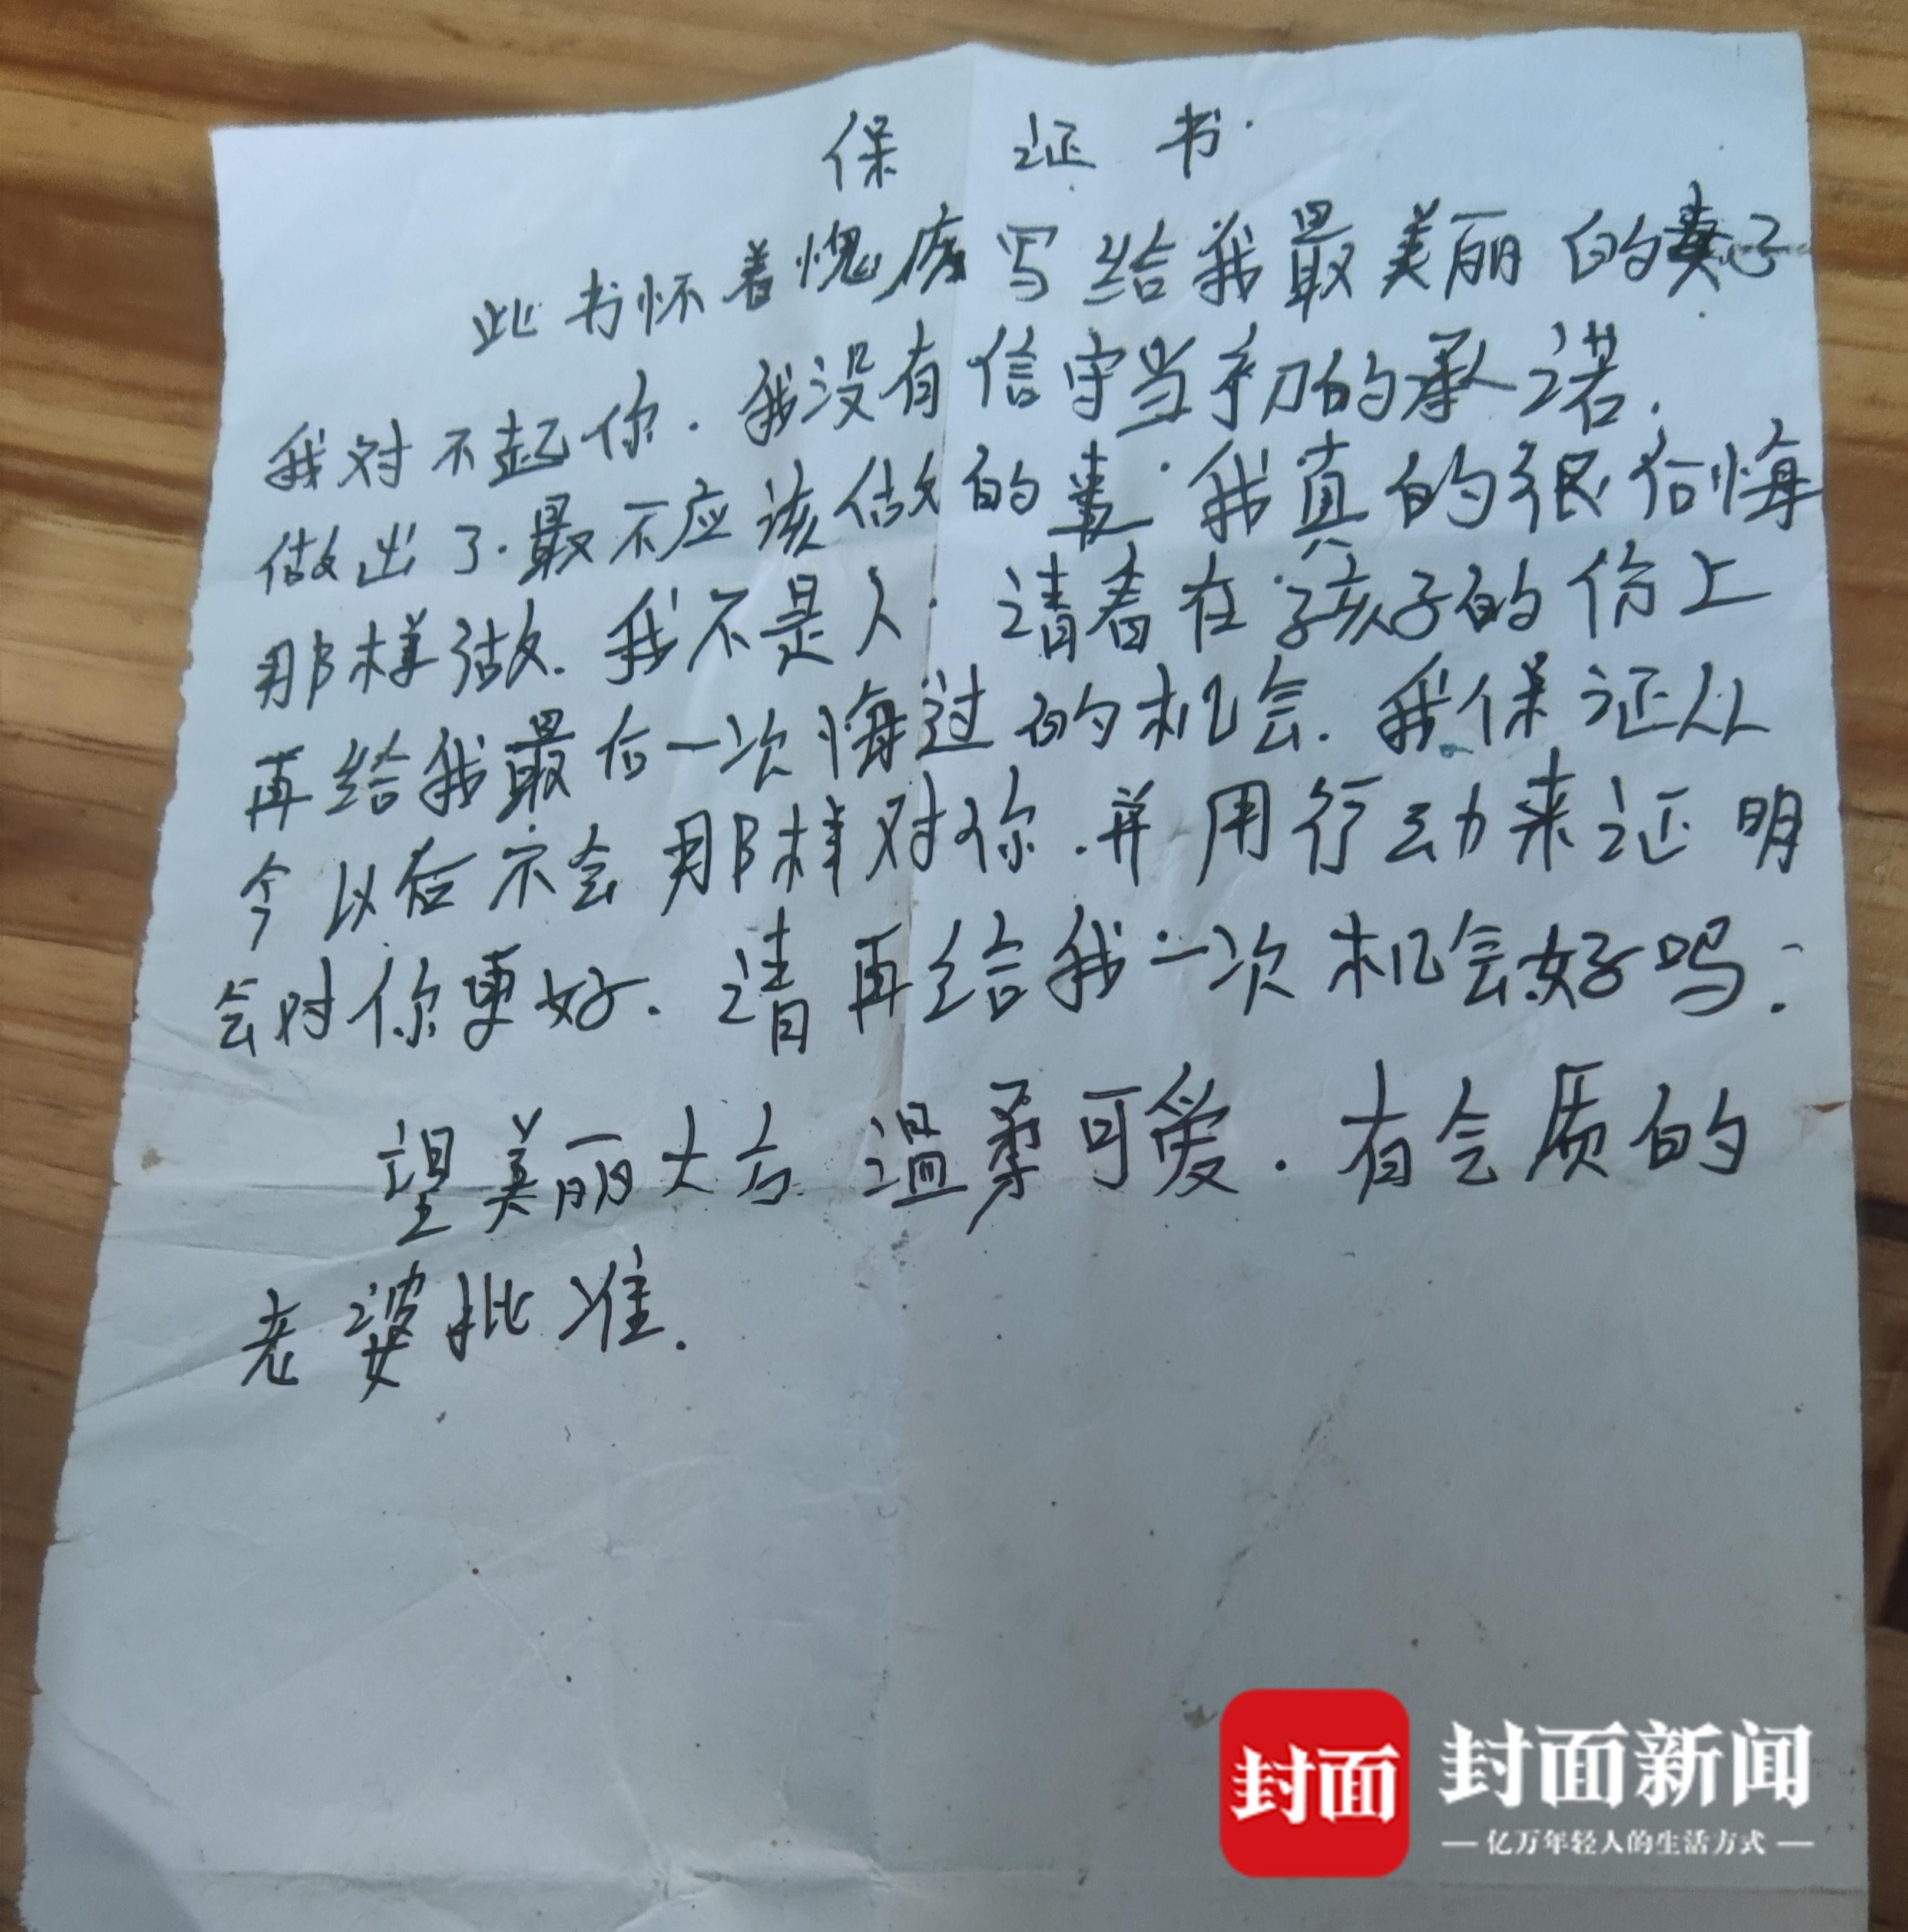 保证书.
此书怀着愧疚写给我最美丽的妻子
我对不起你.我没有信守当初的承诺.
做出了.最不应该做的事.我真的很后悔
那样做.我不是人.请看在孩子的份上
再给我最后一次悔过的机会.我保证从
今以后不会那样对你.并用行动来证明
会对你更好.请再给我一次机会好吗?
望美丽大方.温柔可爱.有气质的
老婆批准.
封面
封面新闻
亿万年轻人的生活方式